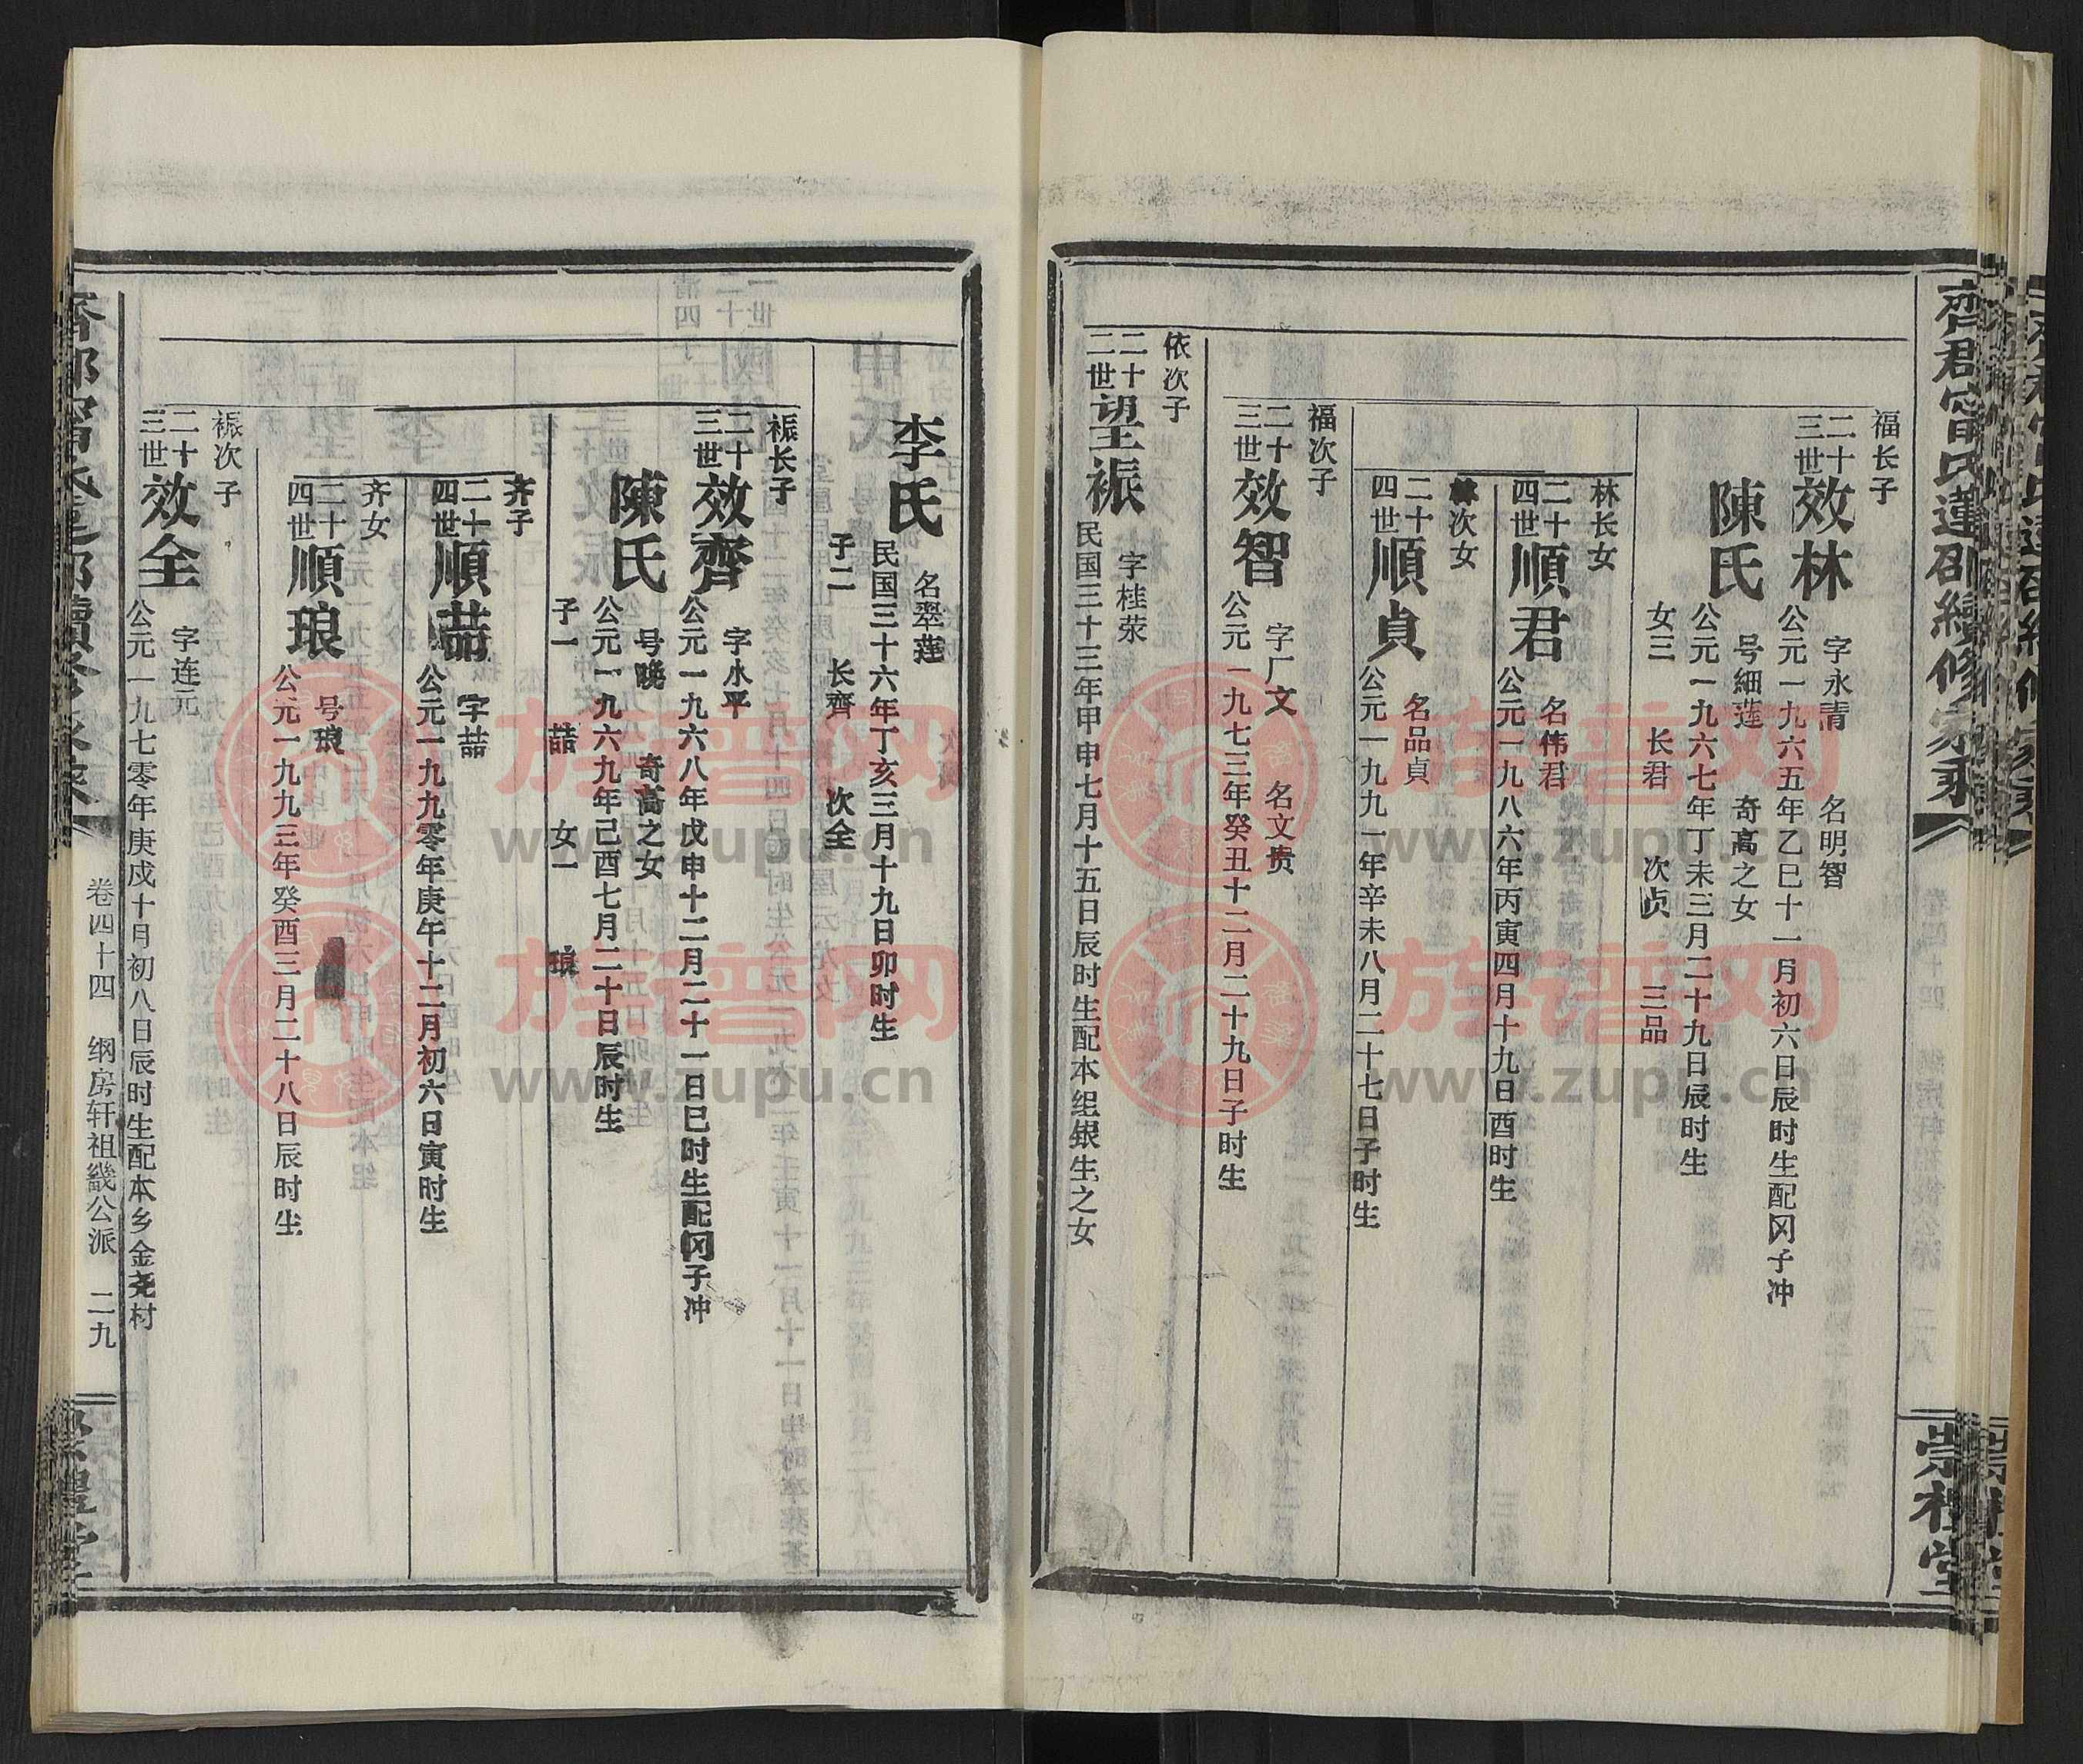 齊君甯氏蓮邵續修家乘
崇禮堂
福长子
二十三世效林
字永清 名明智
公元一九六五年乙巳十一月初六日辰时生配冈子冲
陳氏
号細莲 奇高之女
公元一九六七年丁未三月二十九日辰时生
女三 长君 次贞 三品
林长女
二十四世順君
名伟君
公元一九八六年丙寅四月十九日酉时生
林次女
二十四世順貞
名品貞
公元一九九一年辛未八月二十七日子时生
福次子
二十三世效智
字厂文 名文贵
公元一九七三年癸丑十二月二十九日子时生
依次子
二十二世望裖
字桂荣
民国三十三年甲申七月十五日辰时生配本组银生之女
李氏
名翠莲
民国三十六年丁亥三月十九日卯时生
子二 长齊 次全
裖长子
二十三世效齊
字水平
公元一九六八年戊申十二月二十一日巳时生配冈子冲
陳氏
号晚 奇高之女
公元一九六九年己酉七月二十日辰时生
子一 喆 女一 琅
齐子
二十四世順喆
字喆
公元一九九零年庚午十二月初六日寅时生
齐女
二十四世順琅
号琅
公元一九九三年癸酉三月二十八日辰时生
裖次子
二十三世效全
字连元
公元一九七零年庚戌十月初八日辰时生配本乡金尧村
卷四十四 纲房轩祖畿公派 二九
禮堂
族谱网
www.zupu.cn
族谱网
www.zupu.cn
族谱网
www.zupu.cn
族谱网
www.zupu.cn